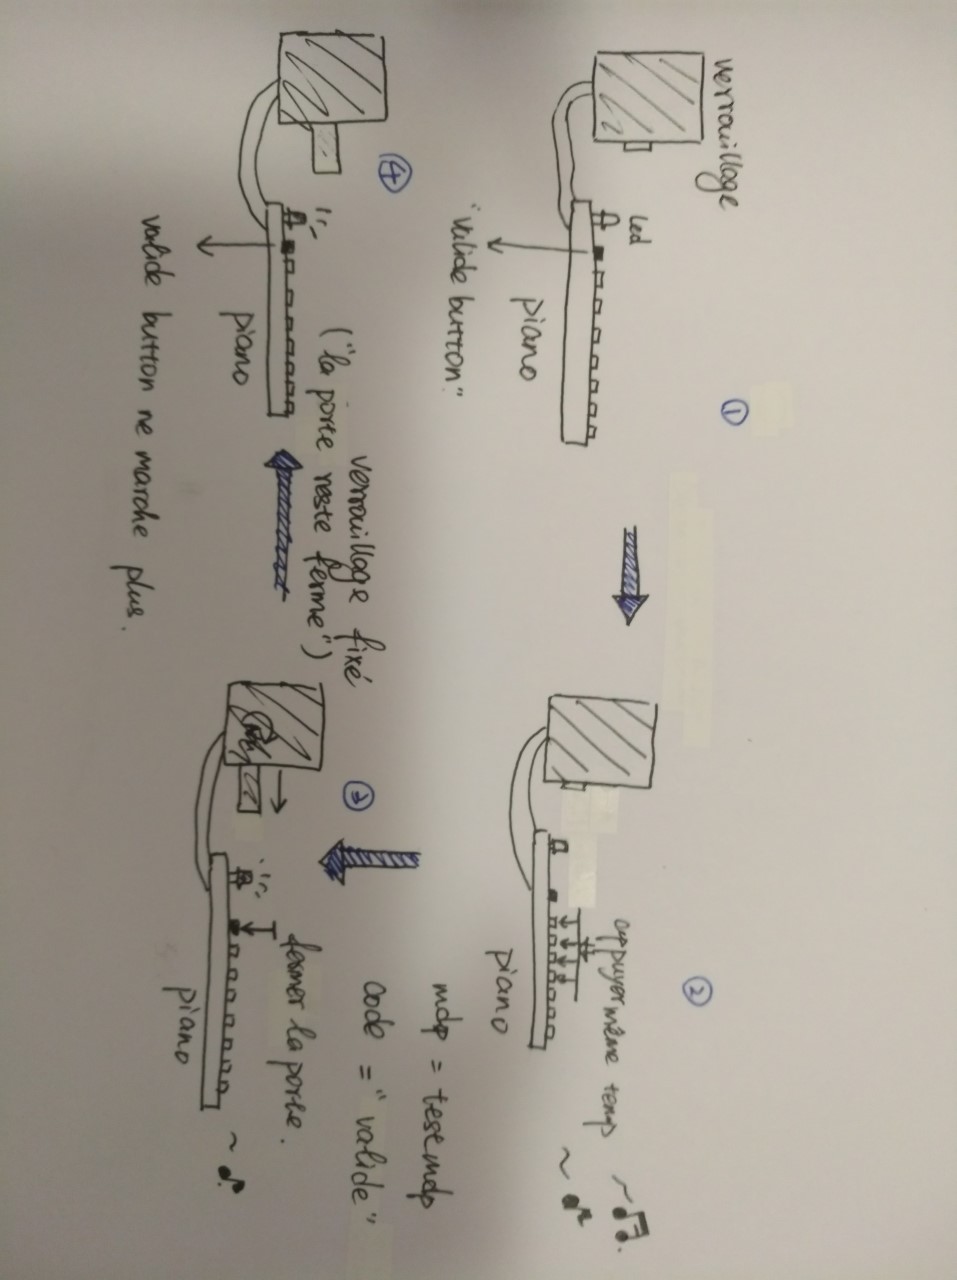 verrouillage
led
①
"valide button"
piano
②
appuyer même temp
piano
mdp = testmdp
code = "valide"
③
fermer la porte.
piano
④
verrouillage fixé
("la porte reste fermé")
piano
valide button ne marche plus.